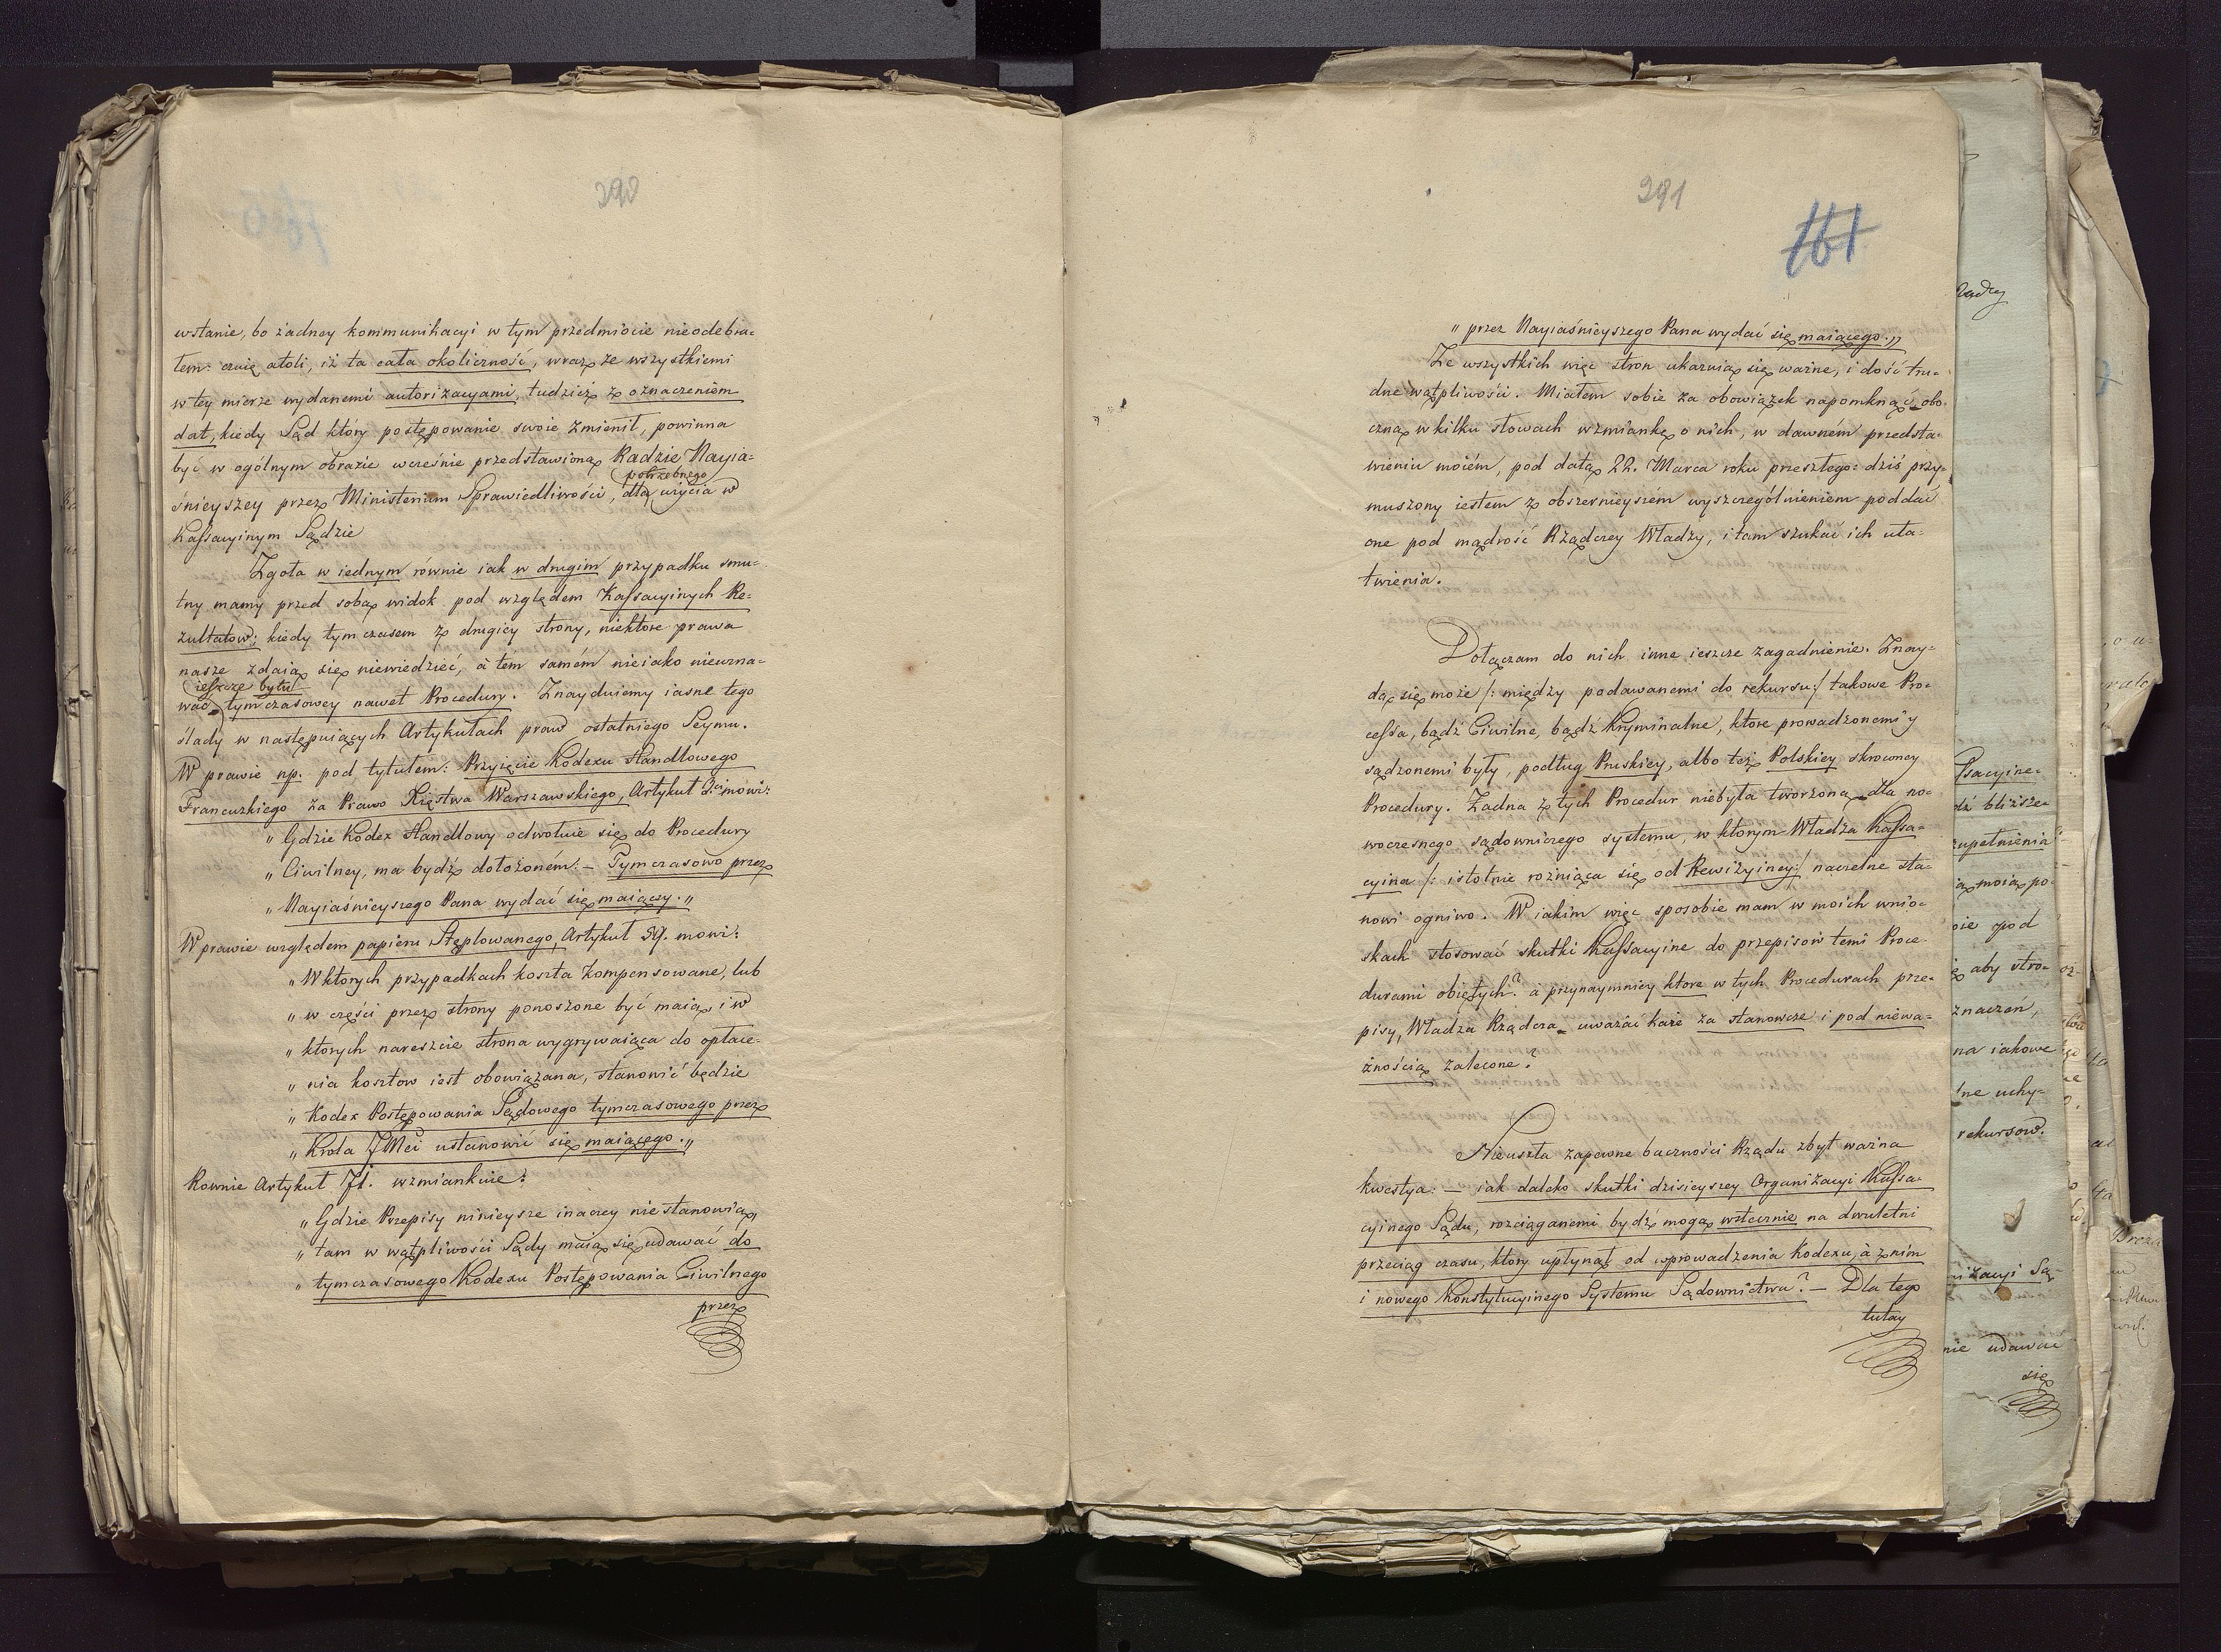 290
wstanie, bo żadney kommunikacyi w tym przedmiocie nieodebra=
łem: czuię atoli, iż ta cała okoliczność, wraz ze wszystkiemi
w tey mierze wydanemi autorizacyami, tudzież z oznaczeniem
dat, kiedy Sąd który postępowanie swoie zmienił, powinna
być w ogólnym obrazie wcześnie przedstawioną Radzie Nayia=
potrzebnego
śnieyszey przez Ministerium Sprawiedliwości, dla użycia w
Kassacyinym Sądzie
Zgoła w iednym równie iak w drugim przypadku smu=
tny mamy przed sobą widok pod względem Kassacyinych Re=
zultatow: kiedy tym czasem z drugiey strony, niektore prawa
nasze zdaią się niewiedzieć, à tém samém nieiako nieuzna=
ieszcze bytu
wać tymczasowey nawet Procedury. Znayduiemy iasne tego
ślady w następuiących Artykułach praw ostatniego Seymu.
W prawie np. pod tytułem: Przyięcie Kodexu Handlowego
Francuzkiego za Prawo Xięstwa Warszawskiego, Artykuł 3. mowi:
" Gdzie Kodex Handlowy odwołuie się do Procedury
" Ciwilney, ma bydź dołożoném: – Tymczasowo przez
" Nayiaśnieyszego Pana wydać się maiący. "
W prawie względem papieru Stęplowanego, Artykuł 59. mowi:
" W ktorych przypadkach koszta kompensowane, lub
" w części przez strony ponoszone być maią, i w
" ktorych nareszcie strona wygrywaiąca do opłace=
" nia kosztow iest obowiązana, stanowić będzie
" Kodex Postępowania Sądowego tymczasowego przez
" Krola JMci ustanowić się maiącego. "
Rownie Artykuł 71. wzmiankuie:
" Gdzie Przepisy ninieysze inaczey nie stanowią,
" tam w wątpliwości Sądy maią się udawać do
" tymczasowego Kodexu Postępowania Ciwilnego
przez
291
161
" przez Nayiaśnieyszego Pana wydać się maiącego. "
Ze wszystkich więc stron ukazuią się ważne, i dość tru=
dne wątpliwości. Miałem sobie za obowiązek napomknąć obo=
czną w kilku słowach wzmiankę o nich, w dawném przedsta=
wieniu moiém, pod datą 22. Marca roku przeszłego: dziś przy=
muszony iestem z obszernieyszém wyszczególnieniem poddać
one pod mądrość Rządczey Władzy, i tam szukać ich uła=
twienia.
Dołączam do nich inne ieszcze zagadnienie. Znay=
dą się może /: między podawanemi do rekursu :/ takowe Pro=
cessa, bądź Ciwilne, bądź Kryminalne, ktore prowadzonemi y
sądzonemi były, podług Pruskiey, albo też Polskiey skroconey
Procedury. Żadna z tych Procedur niebyła tworzoną dla no=
woczesnego sądowniczego systemu, w ktorym Władza Kassa=
cyina /: istotnie rożniąca się od Rewizyiney :/ naczelne sta=
nowi ogniwo. W iakim więc sposobie mam w moich wnio=
skach stosować skutki Kassacyine do przepisów temi Proce
durami obiętych? à przynaymniey ktore w tych Procedurach prze=
pisy, Władza Rządcza uważać każe za stanowcze i pod niewa=
żnością zalecone?
Nieuszła zapewne baczności Rządu zbyt ważna
kwestya: – iak daleko skutki dzisieyszey Organizacyi Kassa=
cyinego Sądu, rozciąganemi bydź mogą wstecznie na dwuletni
przeciąg czasu, ktory upłynął od wprowadzenia Kodexu, à z nim
i nowego Konstytucyinego Systemu Sądownictwa? – Dla tego
tutay
ssacyine=
dź bliższe=
zupełnienia
ią moią po=
pod
aby stro=
znaczeń,
na iakowe
uchy=
rekursow.
nizacyi Są=
nie udawać
się